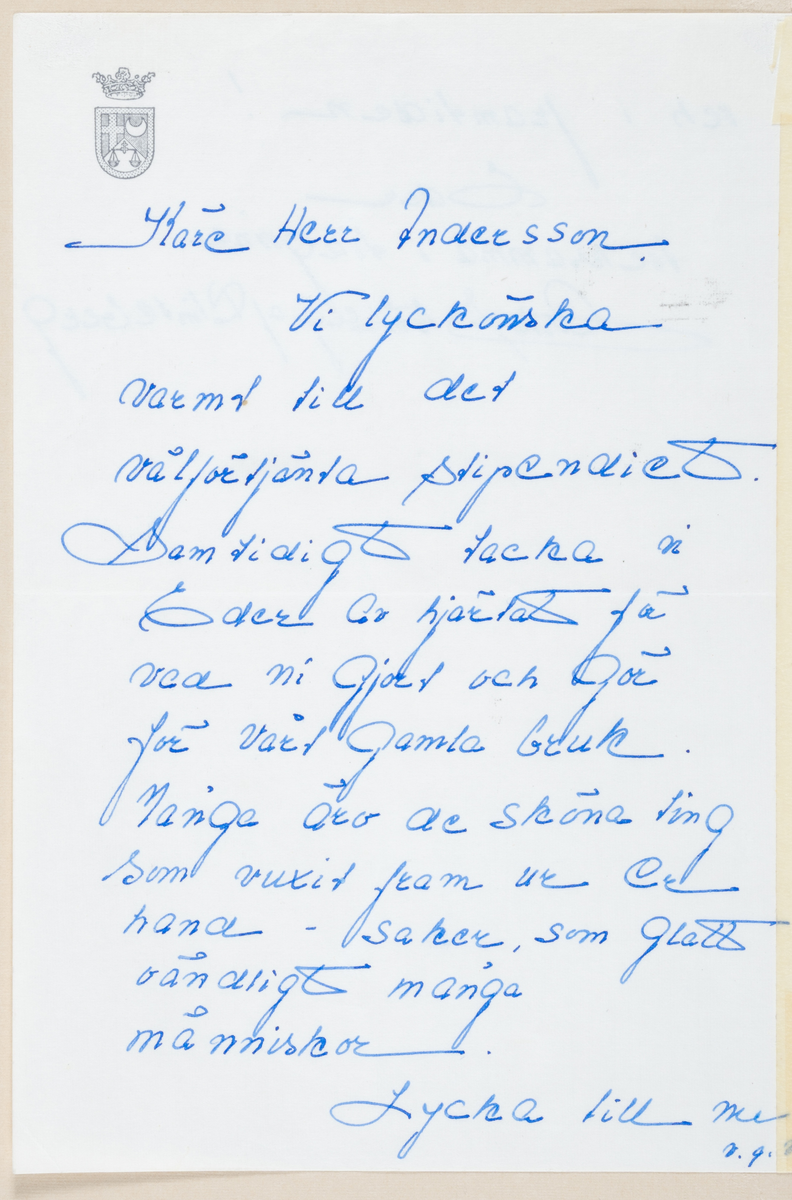 Käre Herr Andersson.
Vi lyckönska
varmt till det
välförtjänta stipendiet.
Samtidigt tacka vi
Eder av hjärtat för
vad ni gjort och gör
för vårt gamla bruk.
Många äro de sköna ting
som vuxit fram ur Er
hand - saker, som glatt
oändligt många
människor.
Lycka till me
v.g.